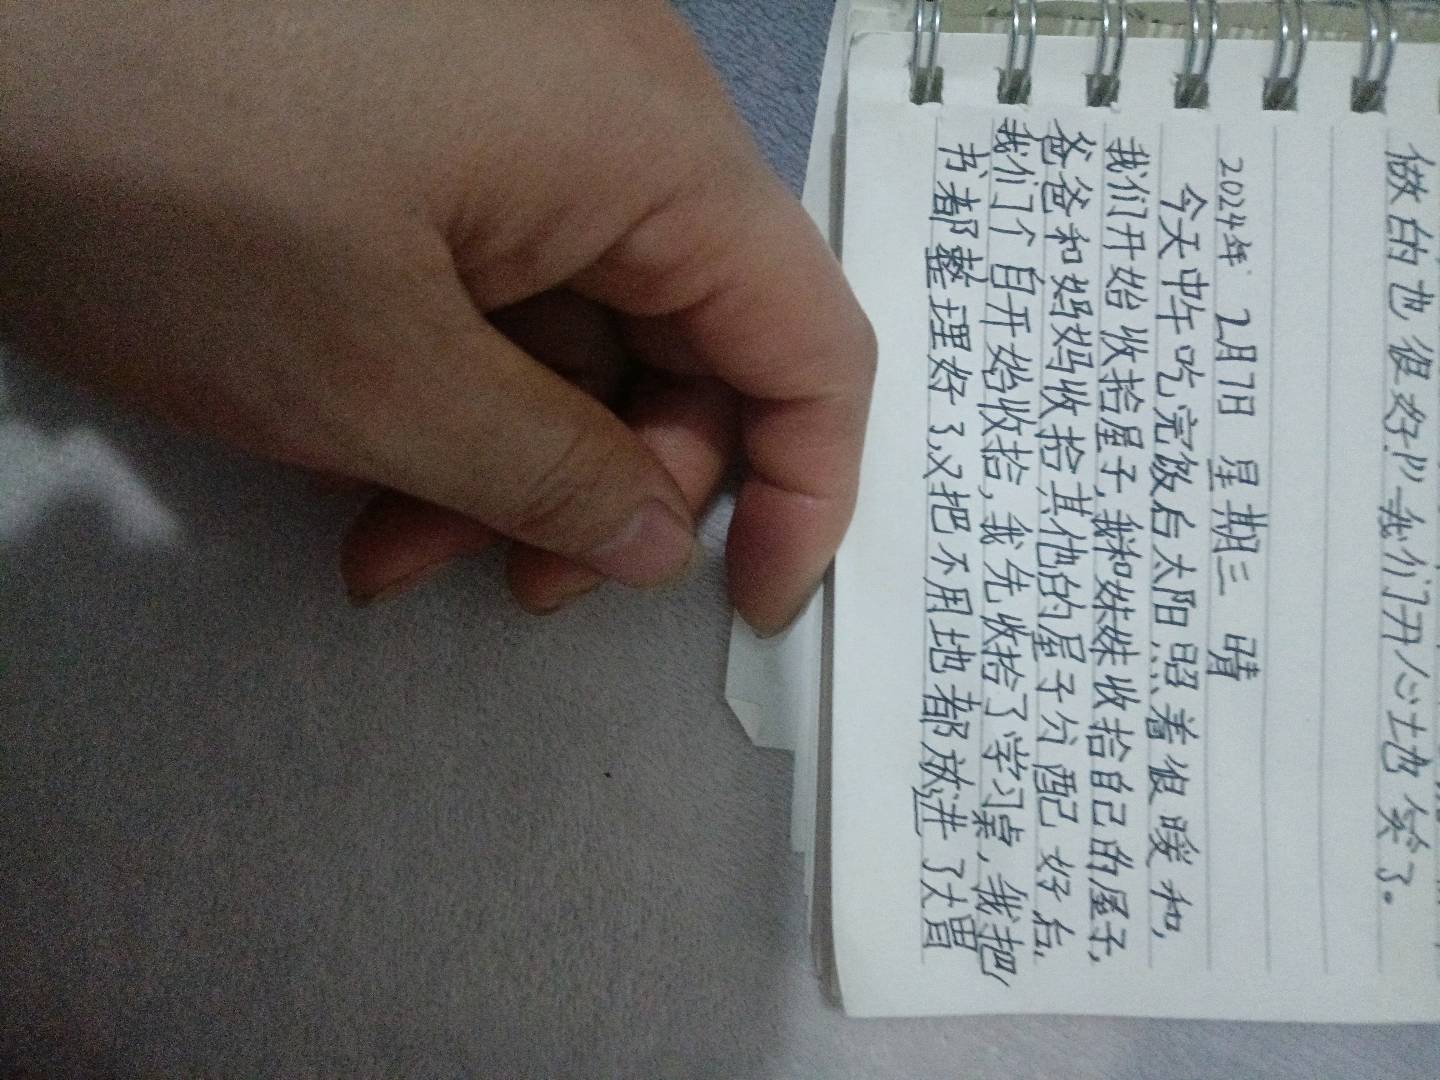 做的也很好!”我们开心地笑了。
2024年 2月7日 星期三 晴
今天中午吃完饭后太阳照着很暖和,
我们开始收拾屋子,我和妹妹收拾自己的屋子,
爸爸和妈妈收拾其他的屋子分配好后,
我们个自开始收拾,我先收拾了学习桌,我把
书都整理好了,又把不用地都放进了大